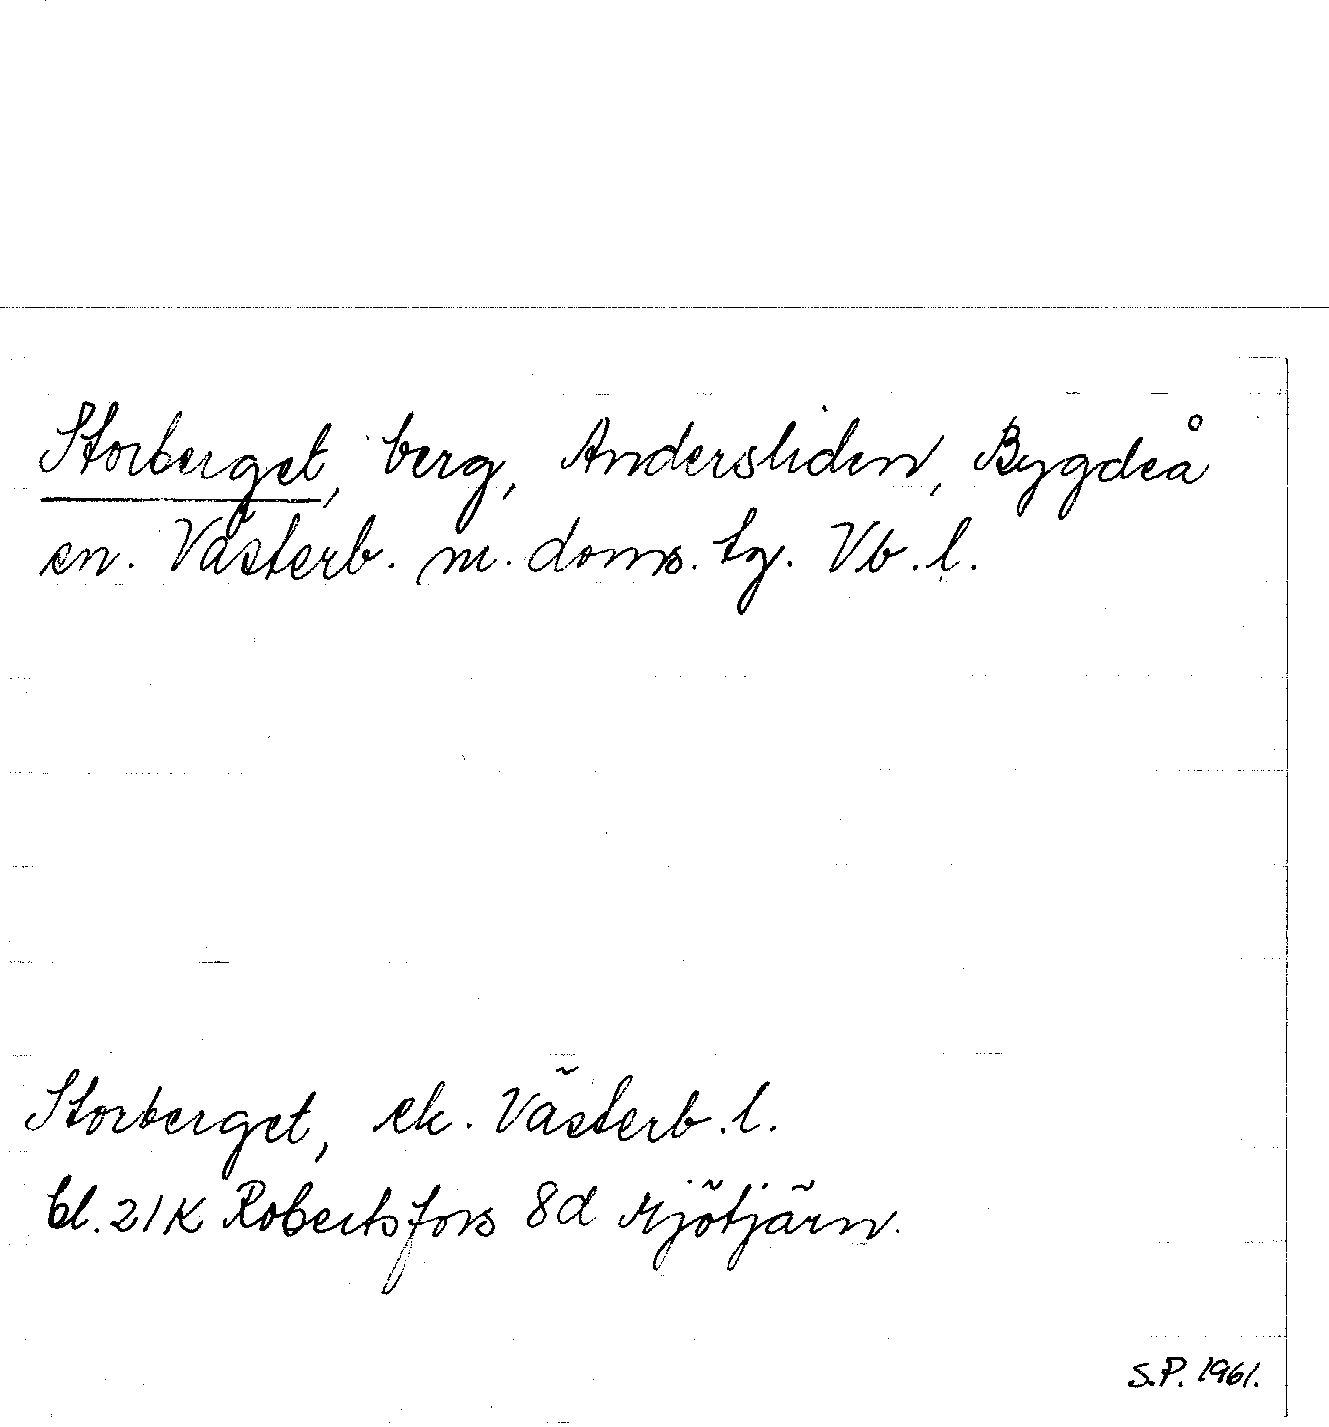 Storberget, berg, Andersliden, Bygdeå
sn. Västerb. m. doms. tg. Vb. l.
Storberget, ek. Västerb. l.
bl. 21K Robertsfors 8d Mjötjärn.
S.P. 1961.